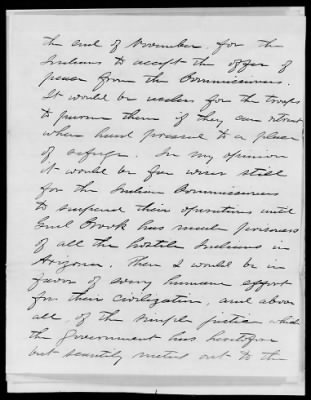 the end of November, for the
Indians to accept the offer of
peace from the Commissioners.
It would be useless for the troops
to pursue them if they can retreat
when hard pressed to a place
of refuge. In my opinion
it would be far wiser still
for the Indian Commissioners
to suspend their operations until
Genl Crook has made prisoners
of all the hostile Indians in
Arizona. Then I would be in
favor of every humane effort
for their civilization, and above
all, of the simple justice which
the government has heretofore
but scantily meted out to the